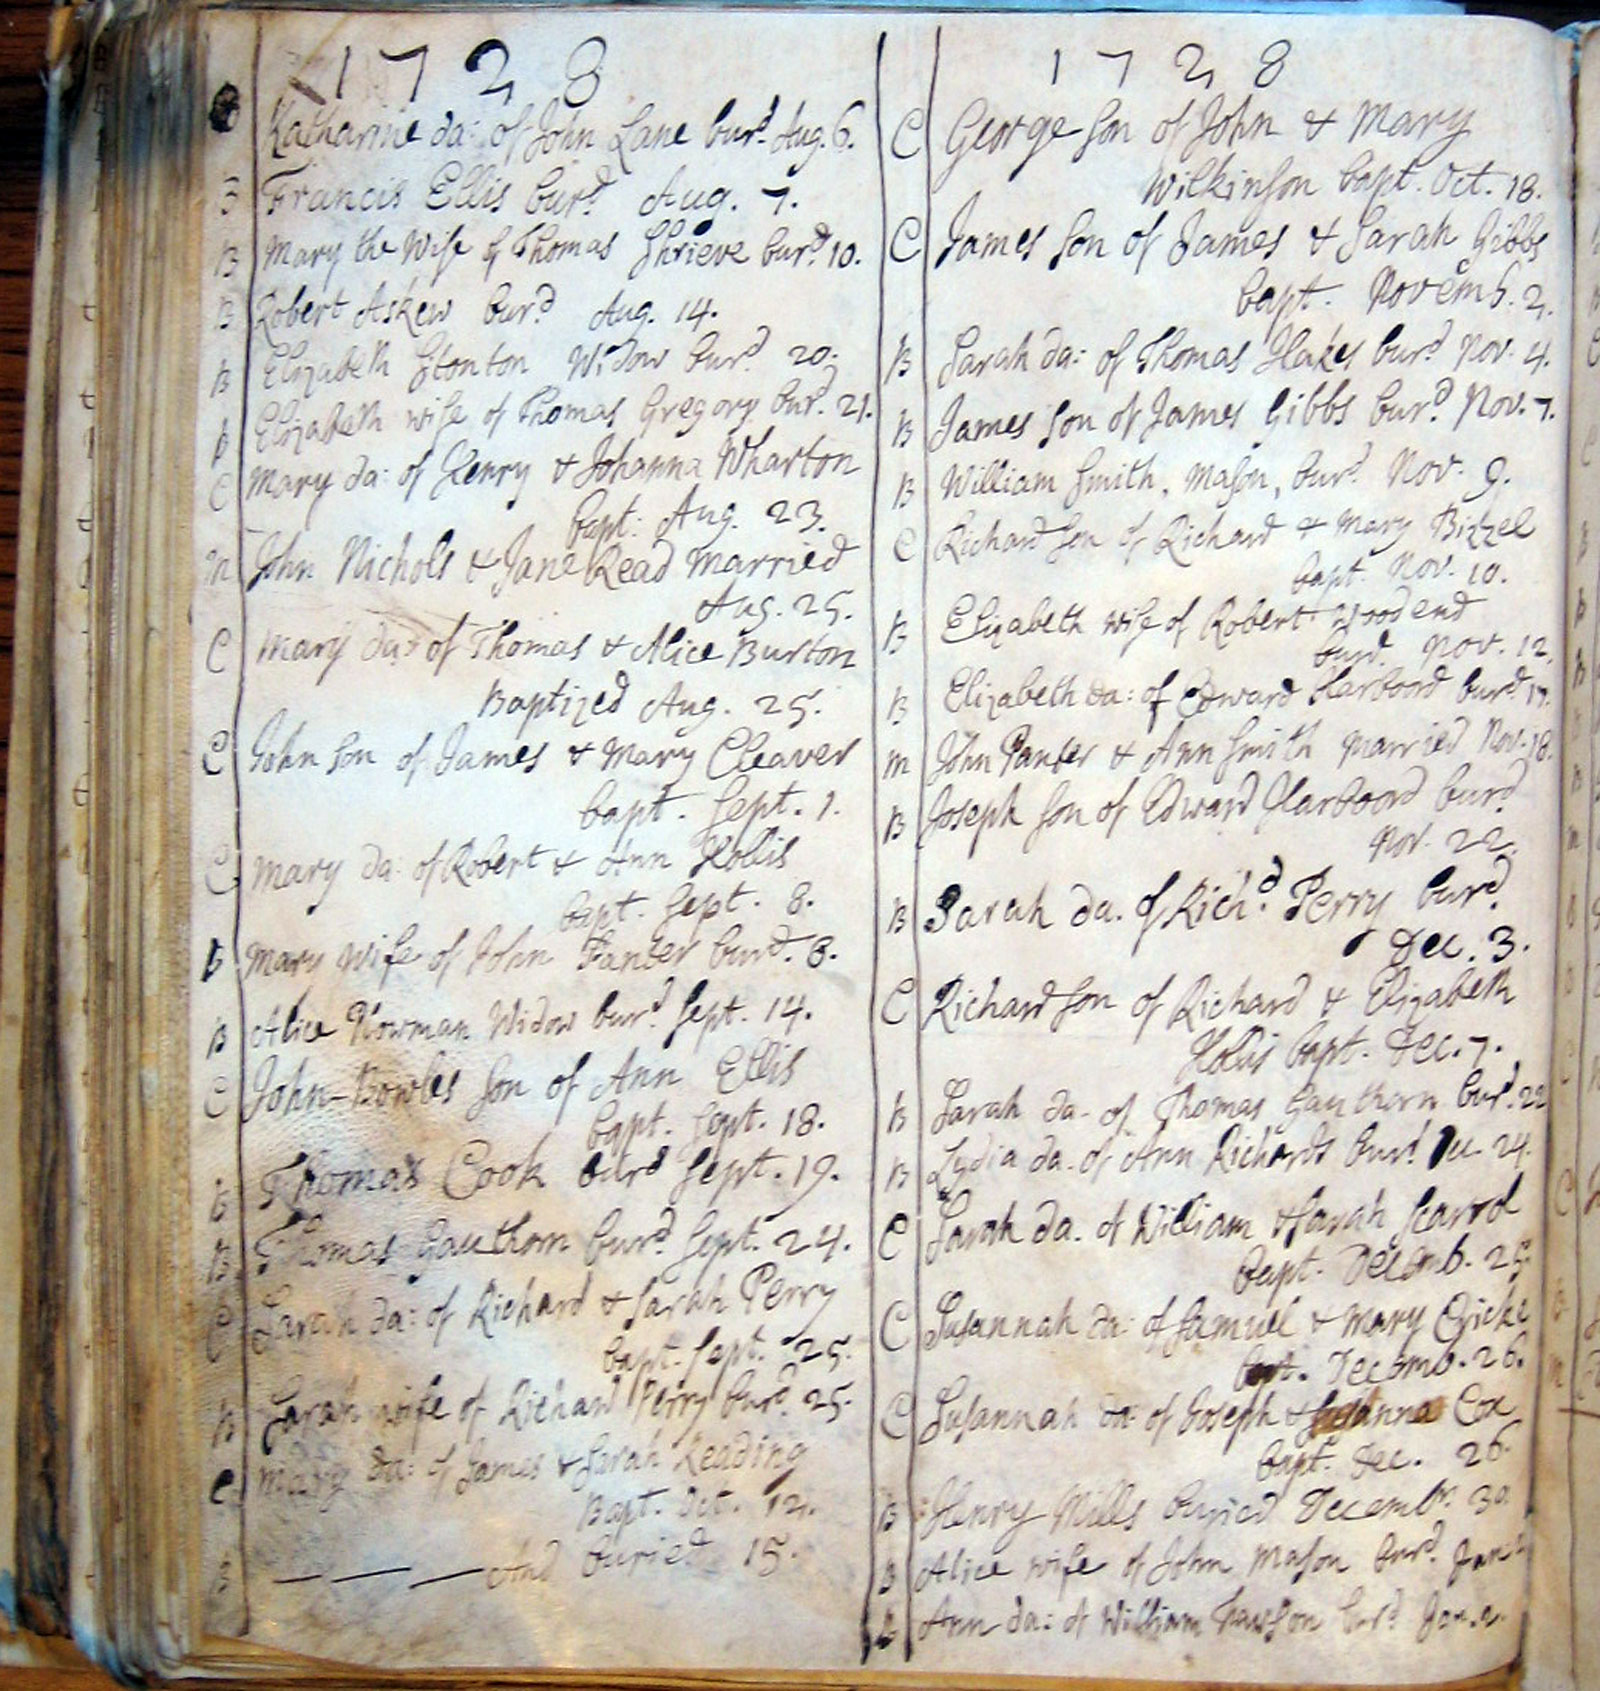 1728
Katharine da: of John Lane burd. Aug. 6.
B Francis Ellis burd. Aug. 7.
B Mary the Wife of Thomas Shrieve burd. 10.
B Robert Askew burd. Aug. 14.
B Elizabeth Stonton Widow burd. 20.
B Elizabeth wife of Thomas Gregory burd. 21.
C Mary da: of Henry & Johanna Wharton
bapt: Aug. 23.
m John Nichols & Jane Read married
Aug. 25.
C Mary da: of Thomas & Alice Burton
Baptized Aug. 25.
C John son of James & Mary Cleaver
bapt. Sept. 1.
C Mary da: of Robert & Ann Hollis
bapt. Sept. 8.
B Mary Wife of John burd. 8.
B Alice Widow burd. Sept. 14.
C John Bowles son of Ann Ellis
bapt. Sept. 18.
B Thomas Cook burd Sept. 19.
B Thomas Gauthorn burd. Sept. 24.
C Sarah da: of Richard & Sarah Perry
bapt. Sept. 25.
B Sarah wife of Richard Perry burd. 25.
C Mary da: of James & Sarah Reading
Bapt. Oct. 12.
B — — — And buried 15.
1728
C George son of John & Mary
Wilkinson bapt. Oct. 18.
C James son of James & Sarah Gibbs
bapt. Novemb. 2.
B Sarah da: of Thomas burd Nov. 4.
B James son of James Gibbs burd Nov. 7.
B William Smith, Mason, burd. Nov. 9.
C Richard son of Richard & Mary Bizzel
bapt. Nov. 10.
B Elizabeth wife of Robert Woodend
burd. Nov. 12.
B Elizabeth da: of Edward Harbood burd 17.
m John Panter & Ann Smith married Nov. 18.
B Joseph son of Edward Harbood burd
Nov. 22.
B Sarah da. of Richd. Perry burd.
Dec. 3.
C Richard son of Richard & Elizabeth
Hollis bapt. Dec. 7.
B Sarah da. of Thomas Gauthorn burd. 22
B Lydia da. of Ann Richards burd. Dec. 24.
C Sarah da. of William & Sarah
bapt. Decemb. 25.
C Susannah da: of Samuel & Mary
bapt. Decemb. 26.
C Susannah da: of Joseph & Susanna Cox
bapt. Dec. 26.
B Henry Mills buried Decembr. 30.
B Alice wife of John Mason burd. Jan
B Ann da: of William burd Jan. 2.